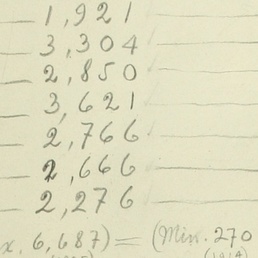 1,921
3,304
2,850
3,621
2,766
2,666
2,276
x. 6,687) = (Min. 270
(1914)